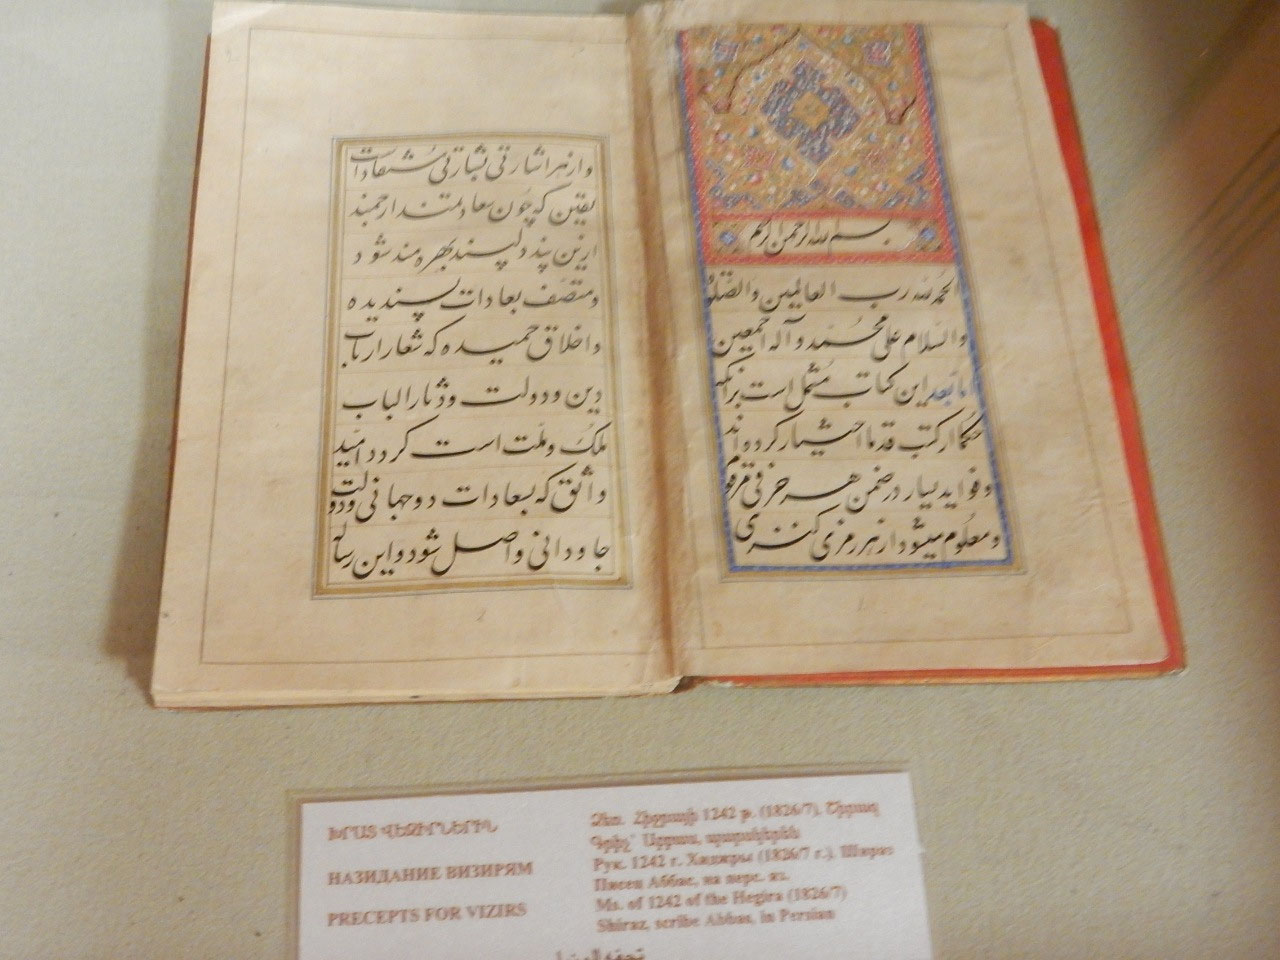 بسم الله الرحمن الرحیم
الحمد لله رب العالمین والصّلوة
والسّلام علی محمّد و آله اجمعین
امّا بعد این کتاب مشتمل است برآنکه
حکما از کتب قدما اختیار کرده‌اند
و فواید بسیار در ضمن هر حرفی مرقوم
و معلوم میشود از هر رمزی کنزی
و از هر اشارتی بشارتی مستفاد است
یقین که چون سعادتمند ارجمند
ازین پند دلپسند بهره مند شود
و متصّف بعادات پسندیده
و اخلاق حمیده که شعار ارباب
دین و دولت و دثار الباب
ملک و ملّت است کردد امید
واثق که بسعادات دوجهانی و دولت
جاودانی واصل شود و این رساله
ԽՐԱՏ ՎԵԶԻՐՆԵՐԻՆ
НАЗИДАНИЕ ВИЗИРЯМ
PRECEPTS FOR VIZIRS
Ձեռ. Հիջրայի 1242 թ. (1826/7), Շիրազ
Գրիչ՝ Աբբաս, պարսկերեն
Рук. 1242 г. Хиджры (1826/7 г.), Шираз
Писец Аббас, на перс. яз.
Ms. of 1242 of the Hegira (1826/7)
Shiraz, scribe Abbas, in Persian